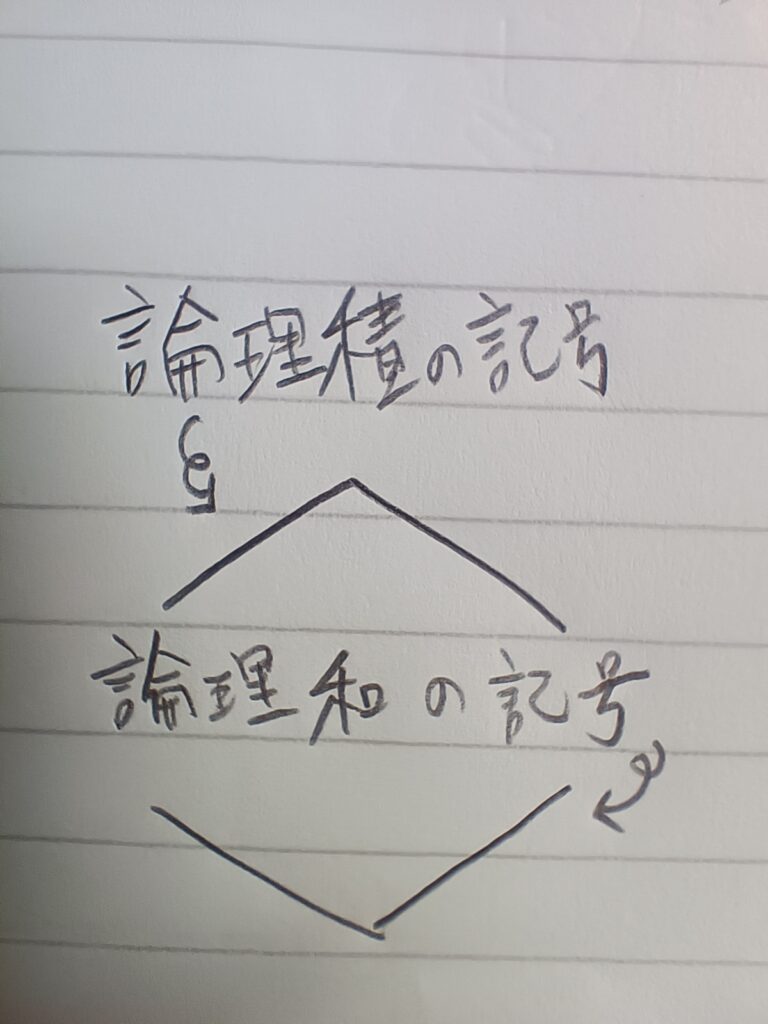 論理積の記号
論理和の記号